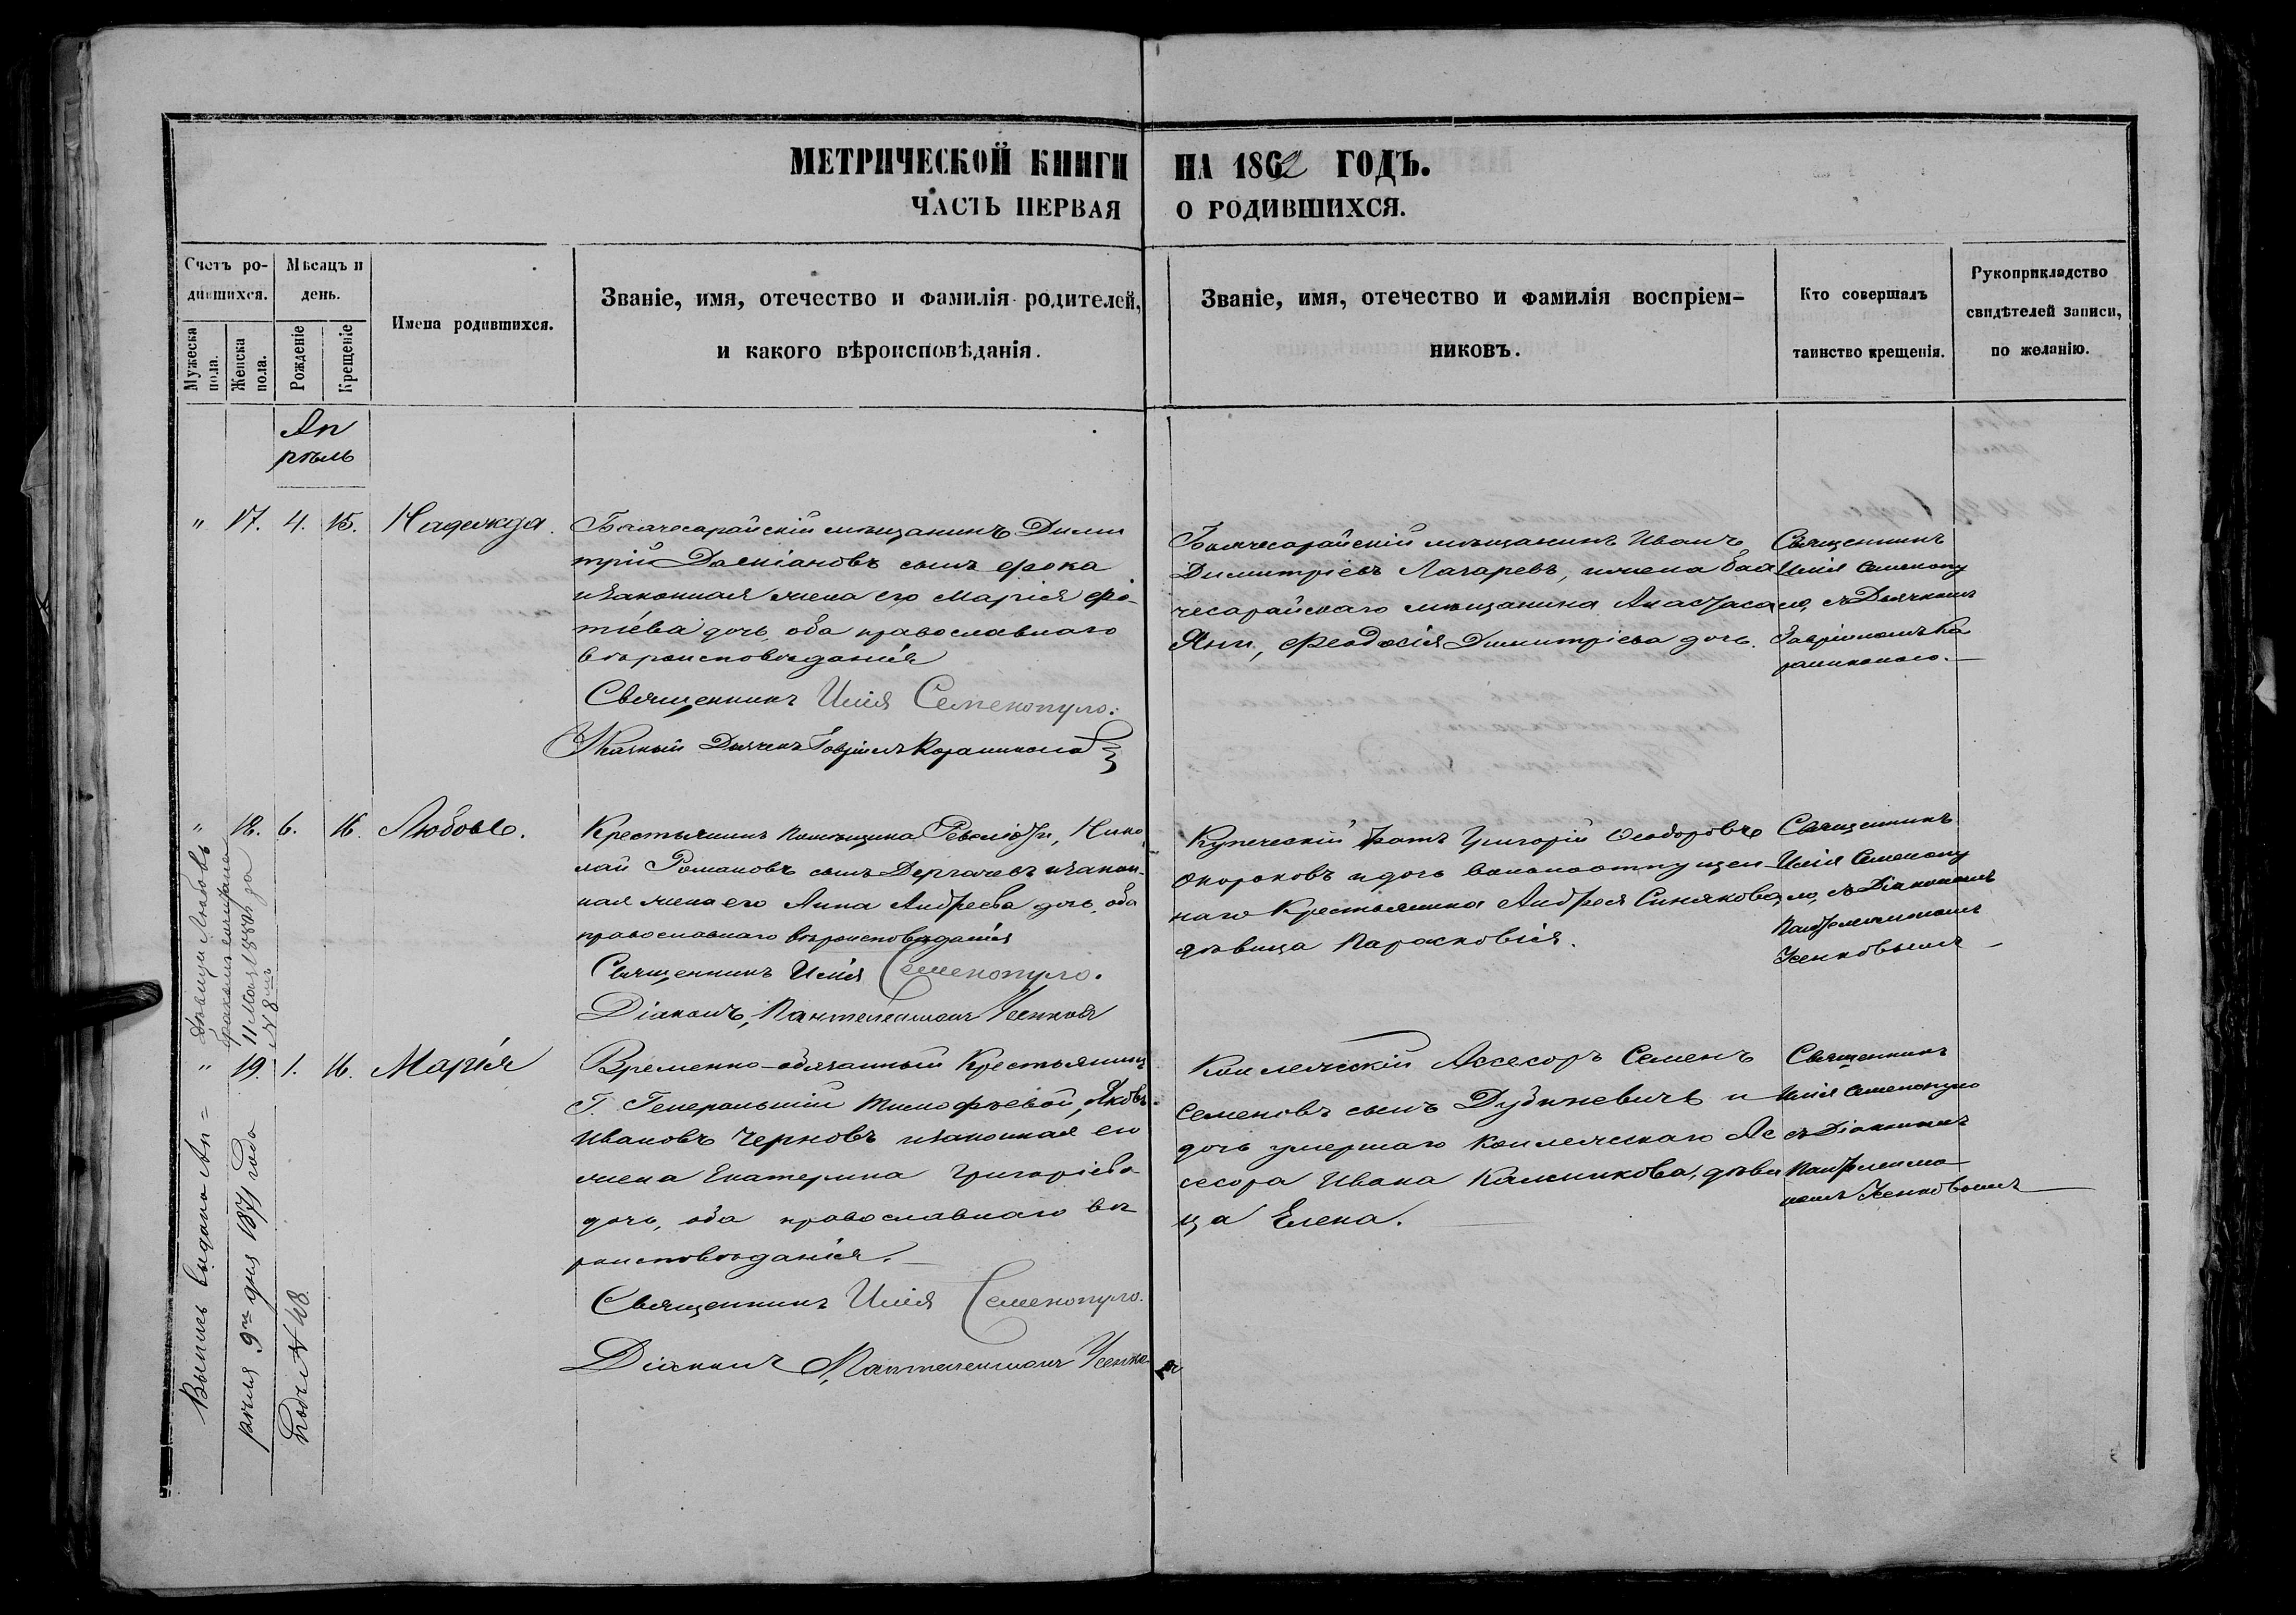 МЕТРИЧЕСКОЙ КНИГИ НА 1862 ГОДЪ.
ЧАСТЬ ПЕРВАЯ О РОДИВШИХСЯ.
Счетъ ро-
дившихся.
Мужеска пола.
Женска пола.
Мѣсяцъ и
день.
Рожденіе
Крещеніе
Имена родившихся.
Званіе, имя, отечество и фамилія родителей,
и какого вѣроисповѣданія.
Званіе, имя, отечество и фамилія воспріем-
никовъ.
Кто совершалъ
таинство крещенія.
Рукоприкладство
свидѣтелей записи,
по желанію.
Ап
рѣль
" 17. 4. 15. Надежда.
Бахчесарайскій мѣщанинъ Дими
трій сынъ Фока
изаконная жена его Марія Фо-
тіева дочь, оба православнаго
вѣроисповѣданія
Священникъ Илія Семенопуло.
Дьячекъ Гавріилъ
Бахчесарайскій мѣщанинъ Иванъ
Димитріевъ Лазаревъ, и жена Бах
чесарайскаго мѣщанина Анастаса
Яни, Феодосія Димитріева дочь.
Священникъ
Илія Семенопу
ло, съ Дьячкомъ
Гавріиломъ Ка
" 18. 6. 16. Любовь.
Крестьянинъ помѣщика Ревеліоти, Нико
лай Романовъ сынъ Дергачевъ изакон-
ная жена его Анна Андреева дочь, оба
православнаго вѣроисповѣданія
Священникъ Илія Семенопуло.
Діаконъ, Пантелеимонъ Усенковъ
Купеческій братъ Григорій Феодоровъ
Окороковъ и дочь вольноотпущен-
наго крестьянина Андрея Синякова,
дѣвица Парасковія.
Священникъ
Илія Семенопу
ло, съ Діакономъ
Пантелеимономъ
Усенковымъ
Дѣвица Любовь
бракомъ сочетана
11 Мая 1880 года
№ 8мъ
" 19. 1. 16. Марія
Временно-обязанный Крестьянинъ
Г. Генеральши Тимофѣевой, Яковъ
Ивановъ Черновъ изаконная его
жена Екатерина Григоріева
дочь, оба православнаго вѣ
роисповѣданія.
Священникъ Илія Семенопуло.
Діаконъ Пантелеимонъ Усенковъ
Коллежскій Ассесоръ Семенъ
Семеновъ сынъ Дубиневичъ и
дочь умершаго Коллежскаго Ас
сесора Ивана Калмыкова, дѣви
ца Елена.
Священникъ
Илія Семенопуло
съ Діакономъ
Пантелеимо-
номъ Усенковымъ
Выпись видана Ап=
рѣля 9го дня 1871 года
подъ № 48